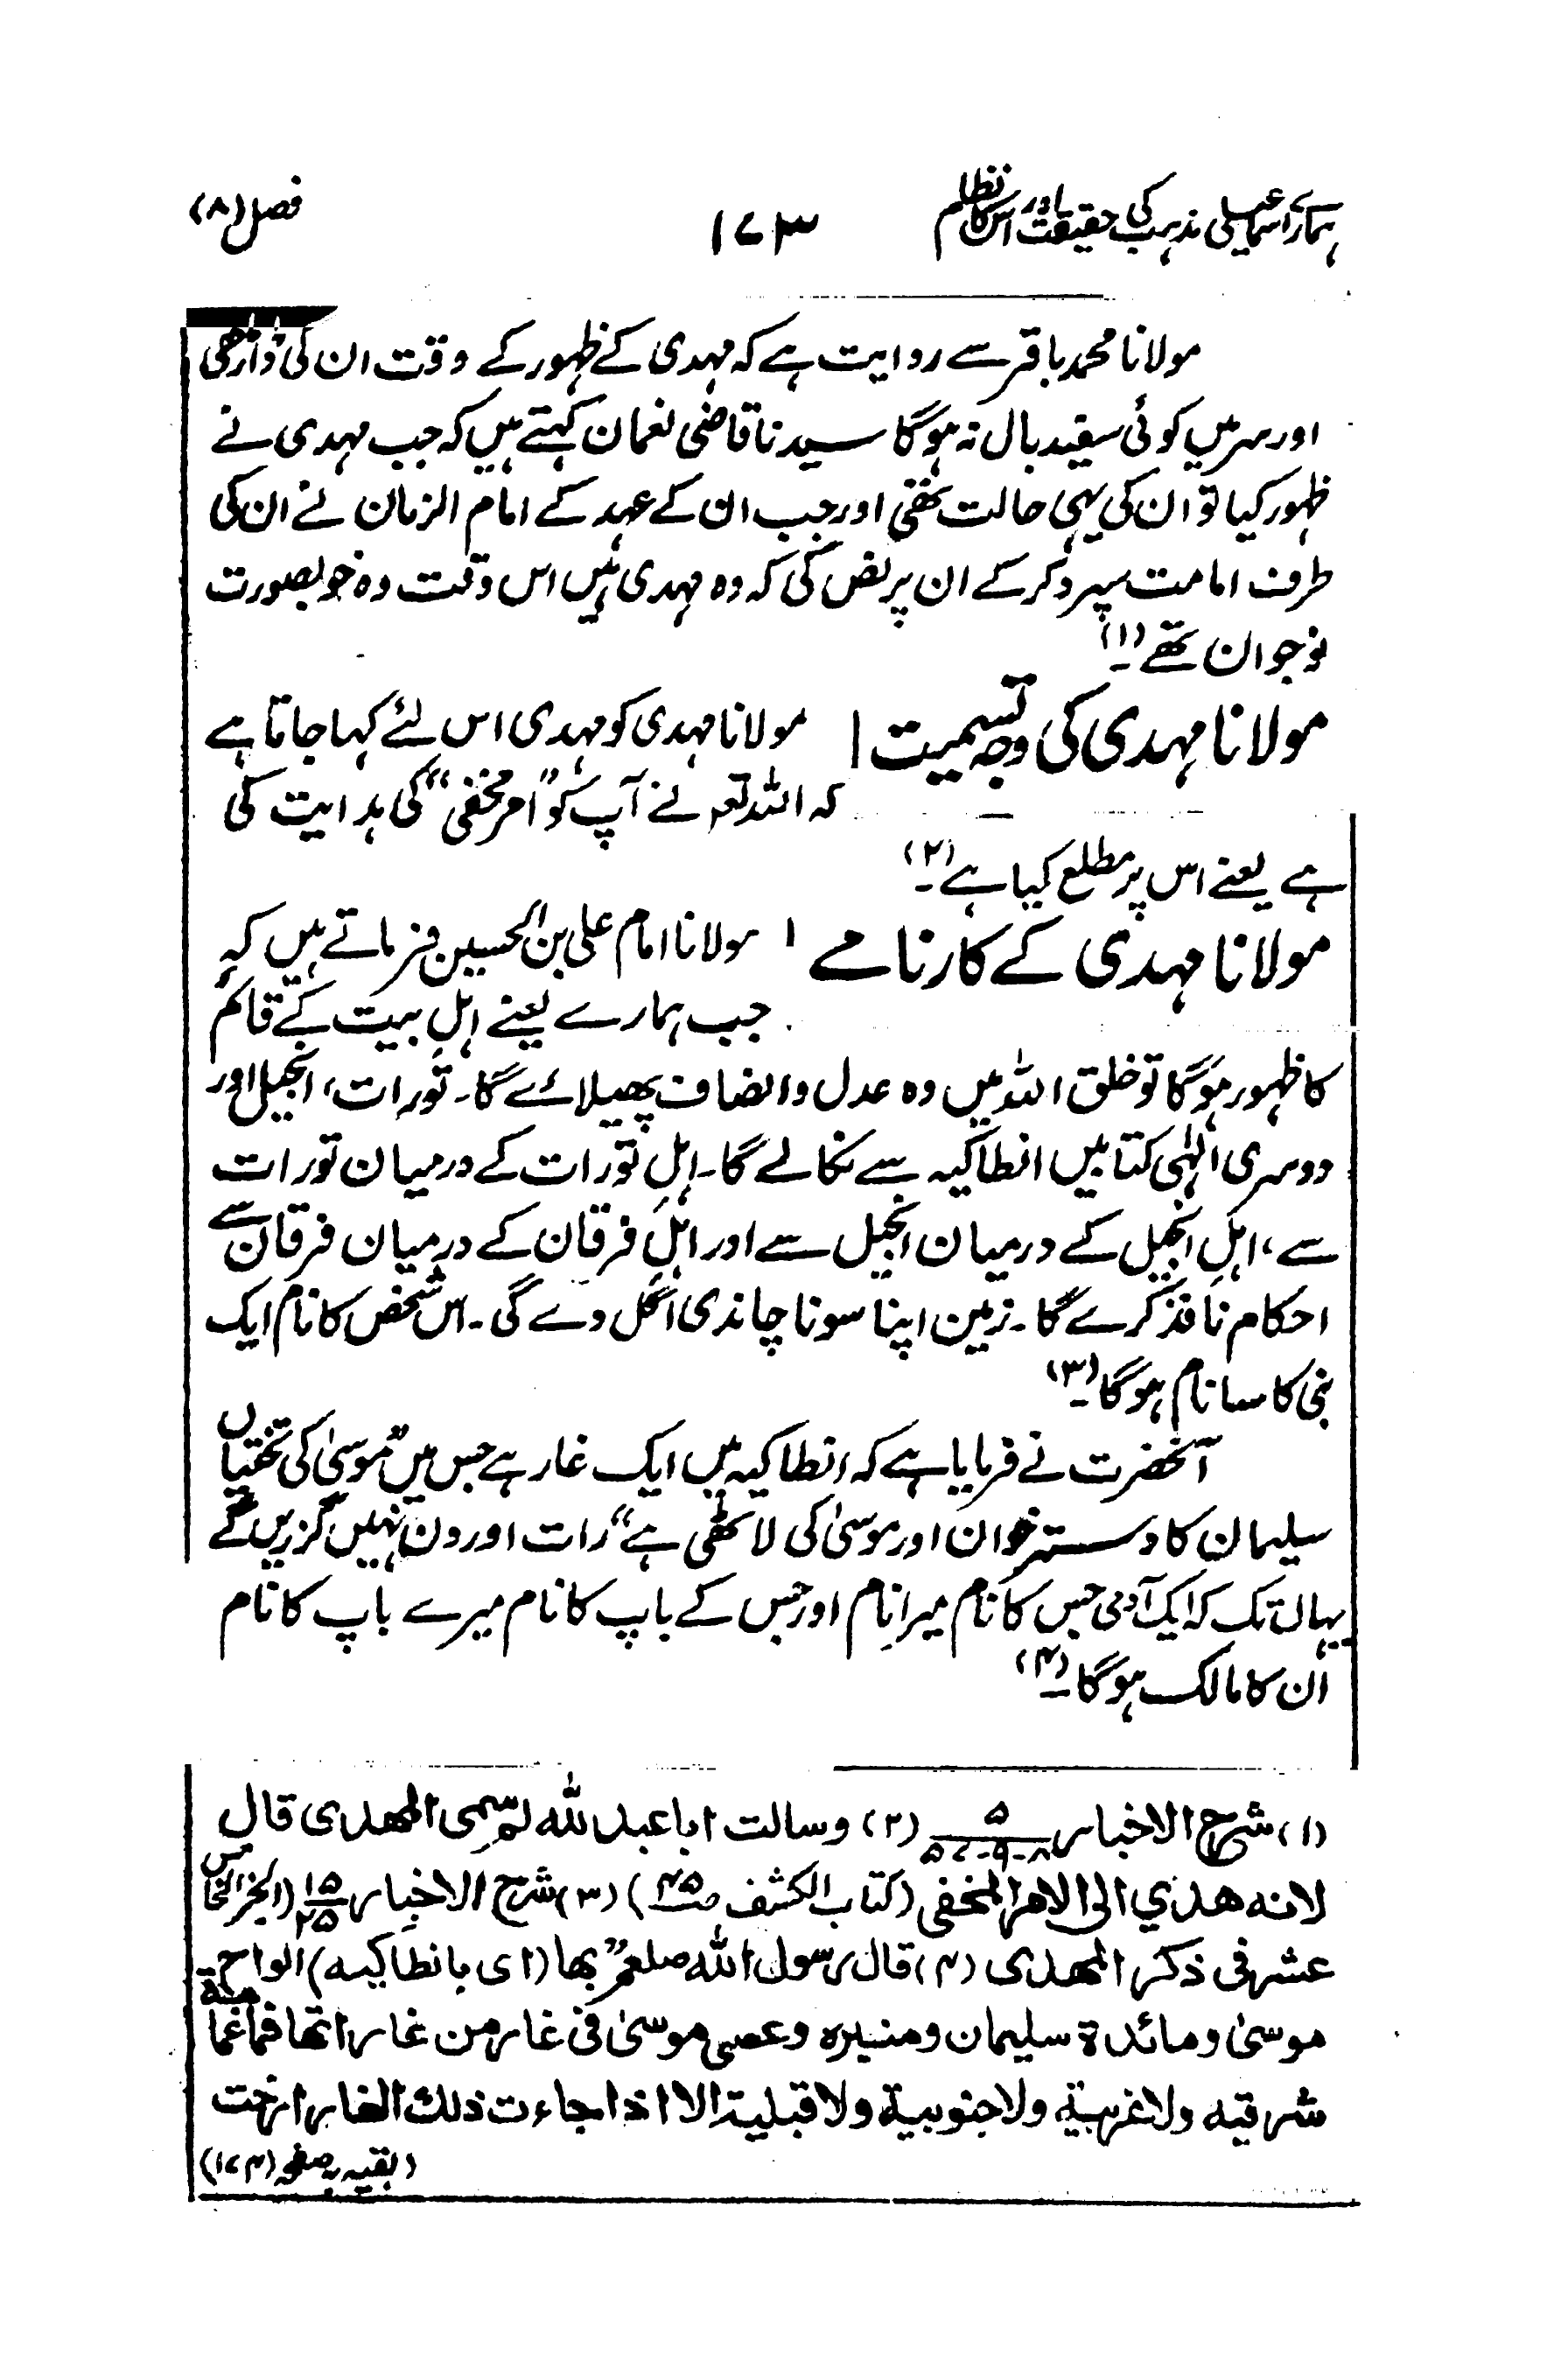 ہمارے اسماعیلی مذہب کی حقیقت اور اس کا نظام
۱۷۳
فصل (۸)
مولانا محمد باقر سے روایت ہے کہ مہدی کے ظہور کے وقت ان کی ڈاڑھی
اور سر میں کوئی سفید بال نہ ہوگا سیدنا قاضی نعمان کہتے ہیں کہ جب مہدی نے
ظہور کیا تو ان کی یہی حالت تھی اور جب ان کے عہد کے امام الزمان نے ان کی
طرف امامت سپرد کر کے ان پر نص کی کہ وہ مہدی ہیں اس وقت وہ خوبصورت
نوجوان تھے (۱)۔
مولانا مہدی کی وجہ تسمیت | مولانا مہدی کو مہدی اس لئے کہا جاتا ہے
کہ اللہ تعہ نے آپ کو "امر مخفی" کی ہدایت کی
ہے یعنے اس پر مطلع کیا ہے (۲)۔
مولانا مہدی کے کارنامے | مولانا امام علی بن الحسین فرماتے ہیں کہ
جب ہمارے یعنے اہلِ بیت کے قائم
کا ظہور ہوگا تو خلق اللہ میں وہ عدل و انصاف پھیلائے گا۔ تورات، انجیل اور
دوسری الٰہی کتابیں انطاکیہ سے نکالے گا۔ اہلِ تورات کے درمیان تورات
سے، اہلِ انجیل کے درمیان انجیل سے اور اہلِ فرقان کے درمیان فرقان سے
احکام نافذ کرے گا۔ زمین اپنا سونا چاندی اگل دے گی۔ اس شخص کا نام ایک
نبی کا سا نام ہوگا (۳)۔
آنحضرت نے فرمایا ہے کہ انطاکیہ میں ایک غار ہے جس میں "موسیٰ کی تختیاں
سلیمان کا دسترخوان اور موسیٰ کی لاٹھی ہے" رات اور دن نہیں گزریں گے
یہاں تک کہ ایک آدمی جس کا نام میرا نام اور جس کے باپ کا نام میرے باپ کا نام
ان کا مالک ہوگا۔ (۴)
(۱) شرح الاخبار ۵ (۲) وسالت ابا عبد للہ لم سمی المھدی قال
لانہ ھدی الی الامر المخفی (کتاب الکشف ص ۴۵) (۳) شرح الاخبار ۱۵/۲۵ (الجزء الخامس
عشر فی ذکر المھدی (۴) قال رسول اللہ صلعم "بھا (ای بانطاکیہ) الواح
موسیٰ و مائدۃ سلیمان و منبرہ و عصی موسیٰ فی غار من غارا تھا فما غمامۃ
شرقیہ ولا غربیۃ ولا جنوبیۃ ولا قبلیۃ الا اذا جاءت ذلک الغار ارخت
(بقیہ بر صفحہ (۱۷۴)